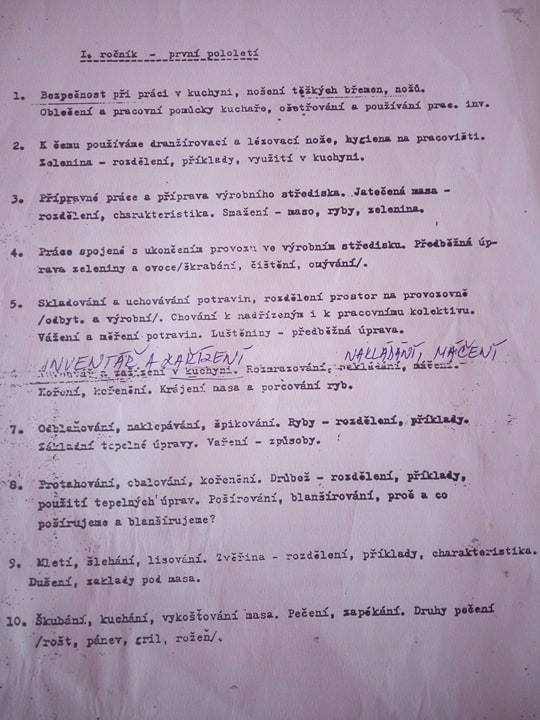 I. ročník - první pololetí
1. Bezpečnost při práci v kuchyni, nošení těžkých břemen, nožů.
Oblečení a pracovní pomůcky kuchaře, ošetřování a používání prac. inv.
2. K čemu používáme dranžírovací a lézovací nože, hygiena na pracovišti.
Zelenina - rozdělení, příklady, využití v kuchyni.
3. Přípravné práce a příprava výrobního střediska. Jatečená masa -
rozdělení, charakteristika. Smažení - maso, ryby, zelenina.
4. Práce spojené s ukončením provozu ve výrobním středisku. Předběžná úp-
rava zeleniny a ovoce/škrabání, čištění, omývání/.
5. Skladování a uchovávání potravin, rozdělení prostor na provozovně
/odbyt. a výrobní/. Chování k nadřízeným i k pracovnímu kolektivu.
Vážení a měření potravin. Luštěniny - předběžná úprava.
INVENTÁŘ A ZAŘÍZENÍ NAKLÁDÁNÍ, MÁČENÍ
a zařízení v kuchyni. Rozmrazování, nakládání, máčení.
Koření, kořenění. Krájení masa a porcování ryb.
7. Odblaňování, naklepávání, špikování. Ryby - rozdělení, příklady.
Základní tepelné úpravy. Vaření - způsoby.
8. Protahování, obalování, kořenění. Drůbež - rozdělení, příklady,
použití tepelných úprav. Pošírování, blanšírování, proč a co
pošírujeme a blanšírujeme?
9. Mletí, šlehání, lisování. Zvěřina - rozdělení, příklady, charakteristika.
Dušení, zaklady pod masa.
10. Škubání, kuchání, vykošťování masa. Pečení, zapékání. Druhy pečení
/rošt, pánev, gril, rožeň/.